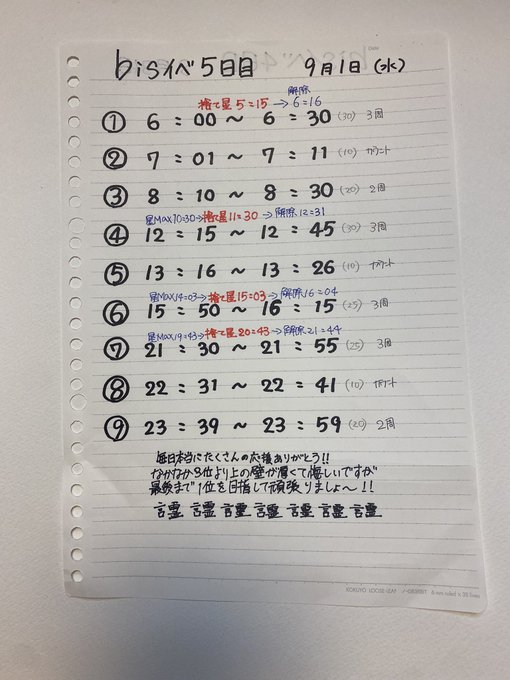 bisイベ5日目 9月1日(水)
捨て星5=15→解除6=16
① 6:00~6:30(30) 3周
② 7:01~7:11(10) カウント
③ 8:10~8:30(20) 2周
星MAX10=30→捨て星11=30→解除12=31
④ 12:15~12:45(30) 3周
⑤ 13:16~13:26(10) カウント
星MAX14=03→捨て星15=03→解除16=04
⑥ 15:50~16:15(25) 3周
星MAX19=43→捨て星20=43→解除21=44
⑦ 21:30~21:55(25) 3周
⑧ 22:31~22:41(10) カウント
⑨ 23:39~23:59(20) 2周
毎日本当にたくさんの応援ありがとう!!
なかなか3位より上の壁が厚くて悔しいですが
最後まで1位を目指して頑張りましょ~!!
言霊 言霊 言霊 言霊 言霊 言霊 言霊
KOKUYO LOOSE-LEAF 6 mm ruled × 35 lines